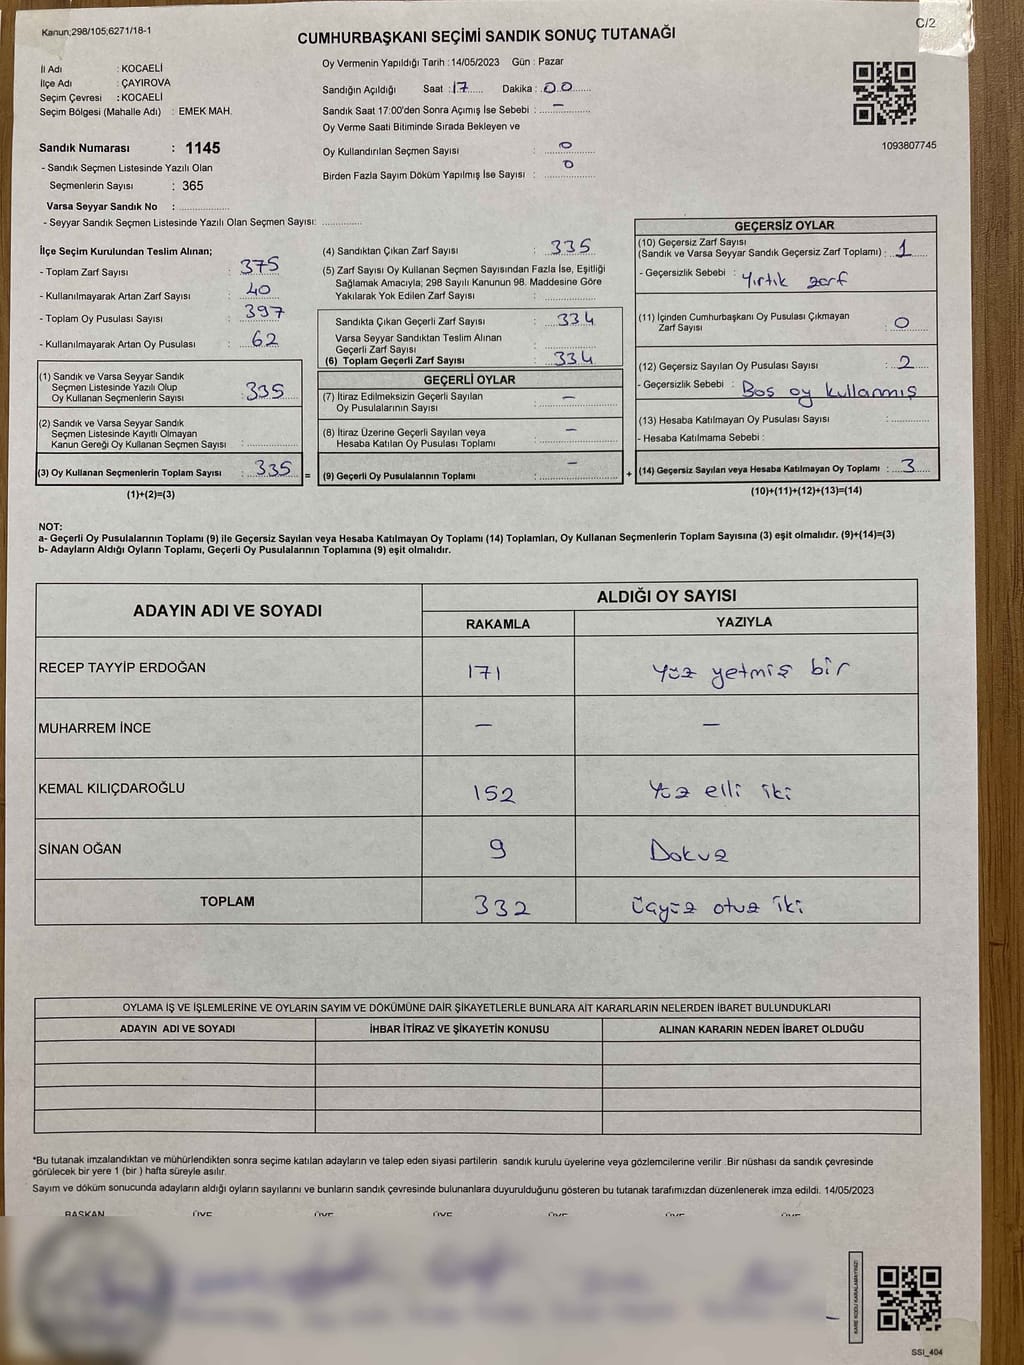 Kanun;298/105;6271/18-1
C/2
CUMHURBAŞKANI SEÇİMİ SANDIK SONUÇ TUTANAĞI
İl Adı : KOCAELİ
İlçe Adı : ÇAYIROVA
Seçim Çevresi : KOCAELİ
Seçim Bölgesi (Mahalle Adı) : EMEK MAH.
Sandık Numarası : 1145
- Sandık Seçmen Listesinde Yazılı Olan
Seçmenlerin Sayısı : 365
Varsa Seyyar Sandık No :
- Seyyar Sandık Seçmen Listesinde Yazılı Olan Seçmen Sayısı:
Oy Vermenin Yapıldığı Tarih : 14/05/2023 Gün : Pazar
Sandığın Açıldığı Saat : 17 Dakika : 00
Sandık Saat 17:00'den Sonra Açımış İse Sebebi : —
Oy Verme Saati Bitiminde Sırada Bekleyen ve
Oy Kullandırılan Seçmen Sayısı : 0
Birden Fazla Sayım Döküm Yapılmış İse Sayısı : 0
1093807745
İlçe Seçim Kurulundan Teslim Alınan;
- Toplam Zarf Sayısı : 375
- Kullanılmayarak Artan Zarf Sayısı : 40
- Toplam Oy Pusulası Sayısı : 397
- Kullanılmayarak Artan Oy Pusulası : 62
(1) Sandık ve Varsa Seyyar Sandık
Seçmen Listesinde Yazılı Olup
Oy Kullanan Seçmenlerin Sayısı : 335
(2) Sandık ve Varsa Seyyar Sandık
Seçmen Listesinde Kayıtlı Olmayan
Kanun Gereği Oy Kullanan Seçmen Sayısı :
(3) Oy Kullanan Seçmenlerin Toplam Sayısı : 335 =
(1)+(2)=(3)
(4) Sandıktan Çıkan Zarf Sayısı : 335
(5) Zarf Sayısı Oy Kullanan Seçmen Sayısından Fazla İse, Eşitliği
Sağlamak Amacıyla; 298 Sayılı Kanunun 98. Maddesine Göre
Yakılarak Yok Edilen Zarf Sayısı :
Sandıkta Çıkan Geçerli Zarf Sayısı : 334
Varsa Seyyar Sandıktan Teslim Alınan
Geçerli Zarf Sayısı :
(6) Toplam Geçerli Zarf Sayısı : 334
GEÇERLİ OYLAR
(7) İtiraz Edilmeksizin Geçerli Sayılan
Oy Pusulalarının Sayısı : —
(8) İtiraz Üzerine Geçerli Sayılan veya
Hesaba Katılan Oy Pusulası Toplamı : —
(9) Geçerli Oy Pusulalarının Toplamı : — +
GEÇERSİZ OYLAR
(10) Geçersiz Zarf Sayısı
(Sandık ve Varsa Seyyar Sandık Geçersiz Zarf Toplamı) : 1
- Geçersizlik Sebebi : Yırtık zarf
(11) İçinden Cumhurbaşkanı Oy Pusulası Çıkmayan
Zarf Sayısı : 0
(12) Geçersiz Sayılan Oy Pusulası Sayısı : 2
- Geçersizlik Sebebi : Boş oy kullanmış
(13) Hesaba Katılmayan Oy Pusulası Sayısı :
- Hesaba Katılmama Sebebi :
(14) Geçersiz Sayılan veya Hesaba Katılmayan Oy Toplamı : 3
(10)+(11)+(12)+(13)=(14)
NOT:
a- Geçerli Oy Pusulalarının Toplamı (9) ile Geçersiz Sayılan veya Hesaba Katılmayan Oy Toplamı (14) Toplamları, Oy Kullanan Seçmenlerin Toplam Sayısına (3) eşit olmalıdır. (9)+(14)=(3)
b- Adayların Aldığı Oyların Toplamı, Geçerli Oy Pusulalarının Toplamına (9) eşit olmalıdır.
ADAYIN ADI VE SOYADI
ALDIĞI OY SAYISI
RAKAMLA YAZIYLA
RECEP TAYYİP ERDOĞAN 171 Yüz yetmiş bir
MUHARREM İNCE — —
KEMAL KILIÇDAROĞLU 152 Yüz elli iki
SİNAN OĞAN 9 Dokuz
TOPLAM 332 Üçyüz otuz iki
OYLAMA İŞ VE İŞLEMLERİNE VE OYLARIN SAYIM VE DÖKÜMÜNE DAİR ŞİKAYETLERLE BUNLARA AİT KARARLARIN NELERDEN İBARET BULUNDUKLARI
ADAYIN ADI VE SOYADI İHBAR İTİRAZ VE ŞİKAYETİN KONUSU ALINAN KARARIN NEDEN İBARET OLDUĞU
*Bu tutanak imzalandıktan ve mühürlendikten sonra seçime katılan adayların ve talep eden siyasi partilerin sandık kurulu üyelerine veya gözlemcilerine verilir. Bir nüshası da sandık çevresinde
görülecek bir yere 1 (bir ) hafta süreyle asılır.
Sayım ve döküm sonucunda adayların aldığı oyların sayılarını ve bunların sandık çevresinde bulunanlara duyurulduğunu gösteren bu tutanak tarafımızdan düzenlenerek imza edildi. 14/05/2023
BAŞKAN ÜYE ÜYE ÜYE ÜYE ÜYE ÜYE
KARE KODU KARALAMAYINIZ!
SSI_404